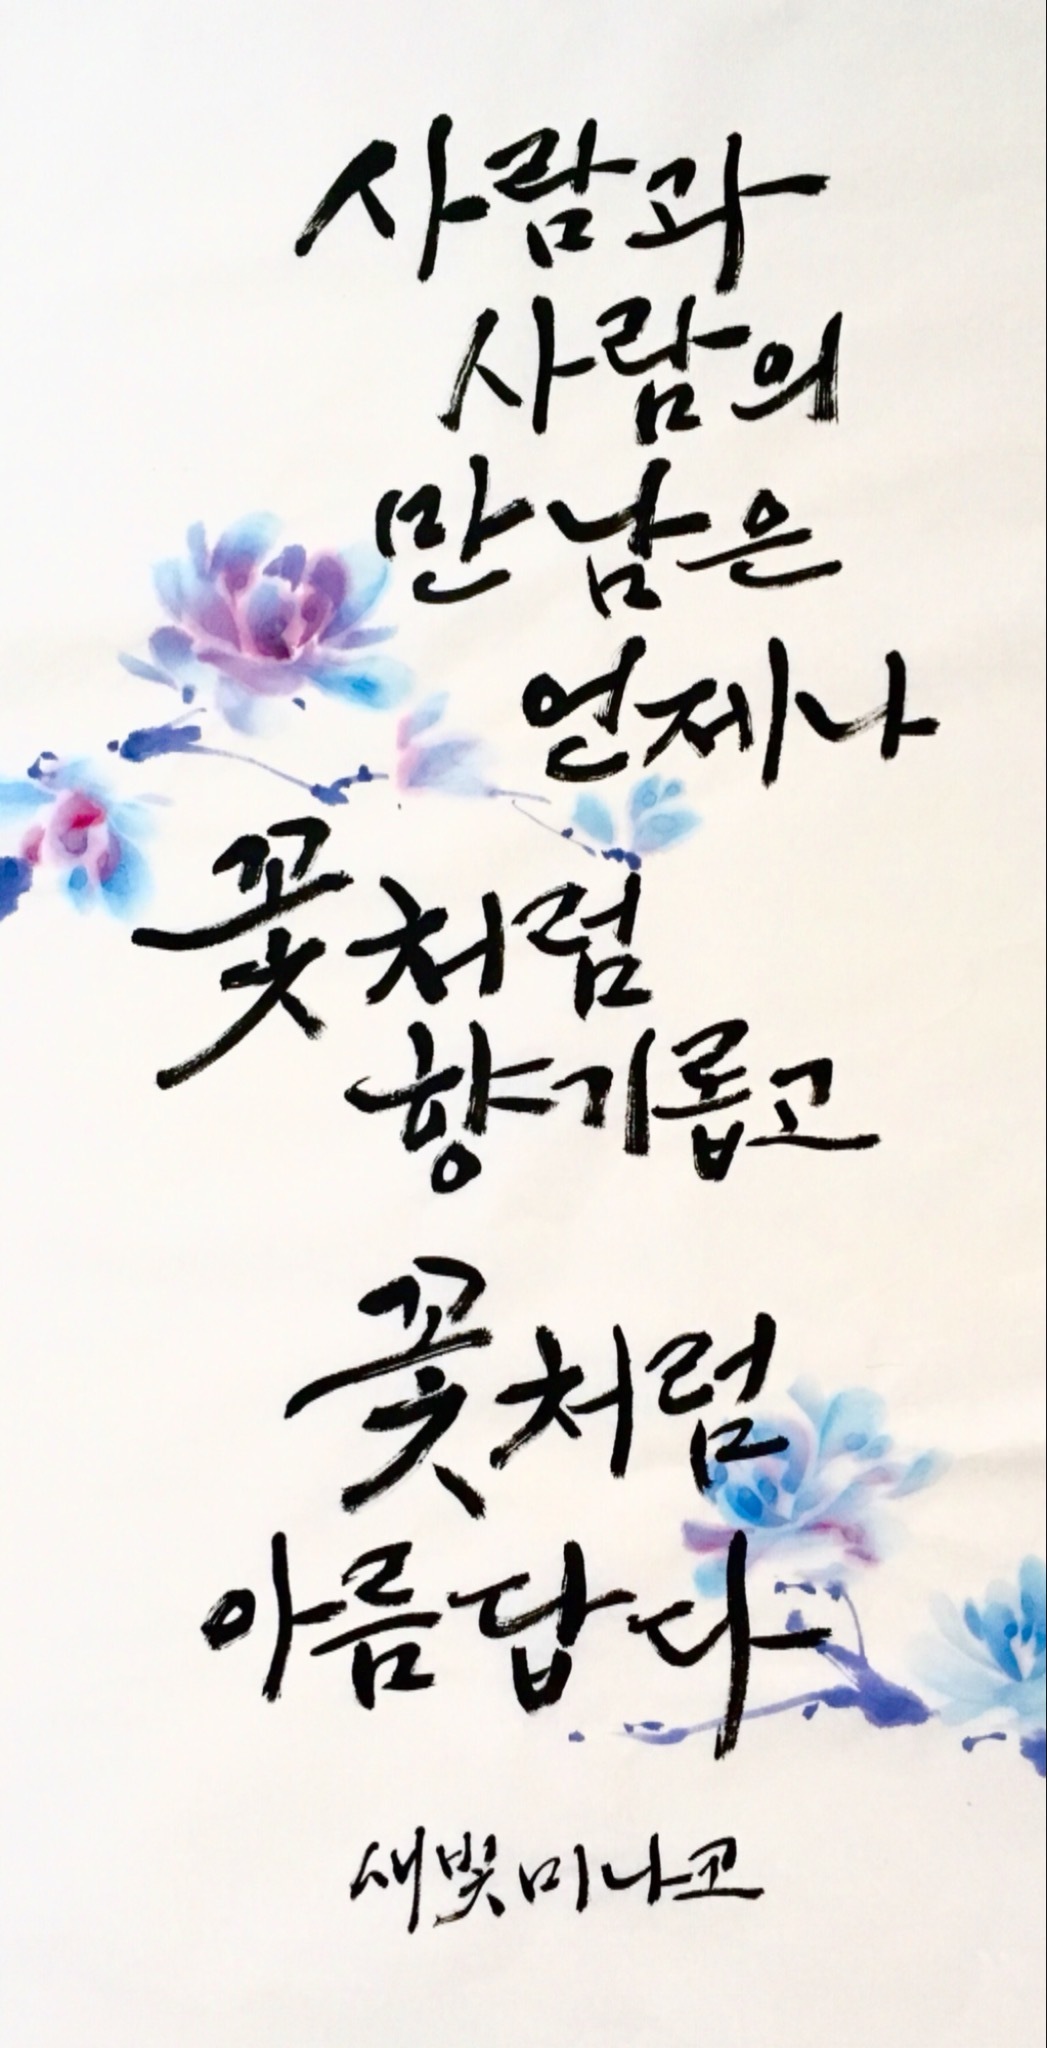 사람과
사람의
만남은
언제나
꽃처럼
향기롭고
꽃처럼
아름답다
새빛 미나코